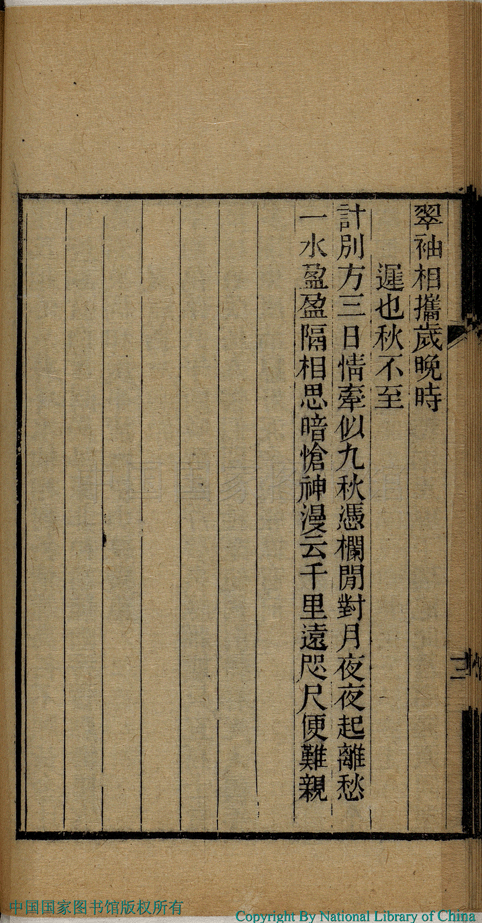 翠袖相攜歲晚時
遲也秋不至
計別方三日情牽似九秋憑欄閒對月夜夜起離愁
一水盈盈隔相思暗愴神漫云千里遠咫尺便難親
三
中国国家图书馆版权所有
Copyright By National Library of China